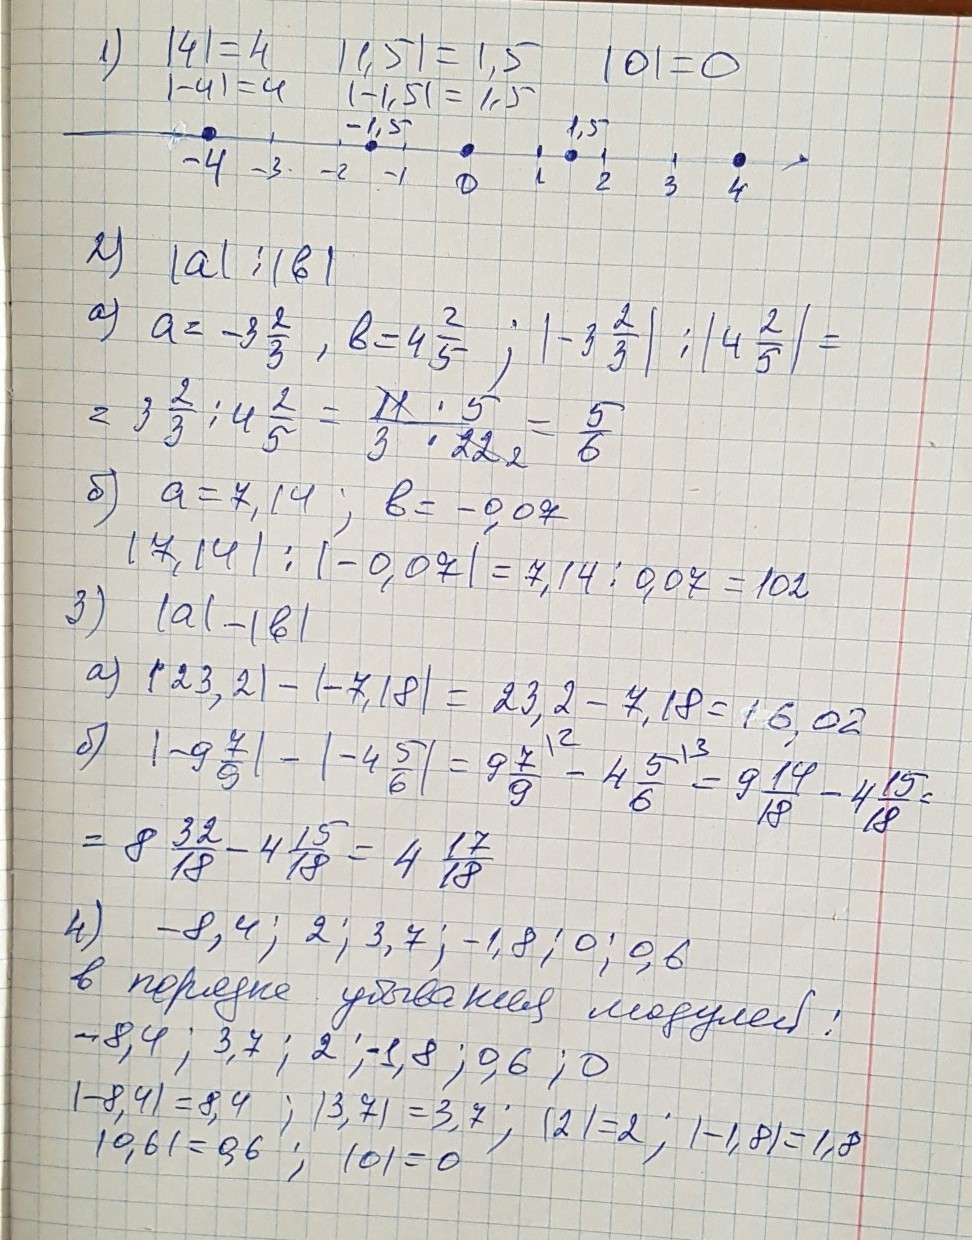 1) |4|=4 |1,5|=1,5 |0|=0
|-4|=4 |-1,5|=1,5
-1,5 1,5
-4 -3 -2 -1 0 1 2 3 4
2) |a| : |b|
а) a= -3 2/3 , b=4 2/5 ; |-3 2/3| : |4 2/5| =
= 3 2/3 : 4 2/5 = 11 · 5 / 3 · 22 2 = 5/6
б) a=7,14 ; b= -0,07
|7,14| : |-0,07| = 7,14 : 0,07 = 102
3) |a| - |b|
а) |23,2| - |-7,18| = 23,2 - 7,18 = 16,02
б) |-9 7/9| - |-4 5/6| = 9 7/9 \2 - 4 5/6 \3 = 9 14/18 - 4 15/18 =
= 8 32/18 - 4 15/18 = 4 17/18
4) -8,4; 2; 3,7; -1,8; 0; 0,6
в порядке убывания модулей:
-8,4; 3,7; 2; -1,8; 0,6; 0
|-8,4| = 8,4 ; |3,7| = 3,7; |2|=2; |-1,8|=1,8
|0,6|=0,6 ; |0|=0